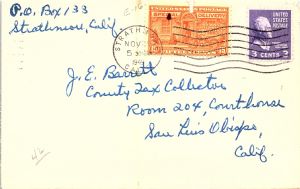 P.O. Box 133
Strathmore, Calif
E-16
UNITED STATES POSTAGE
SPECIAL DELIVERY
UNITED STATES POSTAGE
3 CENTS 3
STRATHM
NOV
5
CALIF
J. E. Barrett
County Tax Collector
Room 204, Courthouse
San Luis Obispo,
Calif.